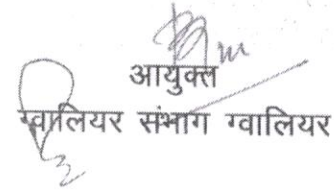 आयुक्त
ग्वालियर संभाग ग्वालियर